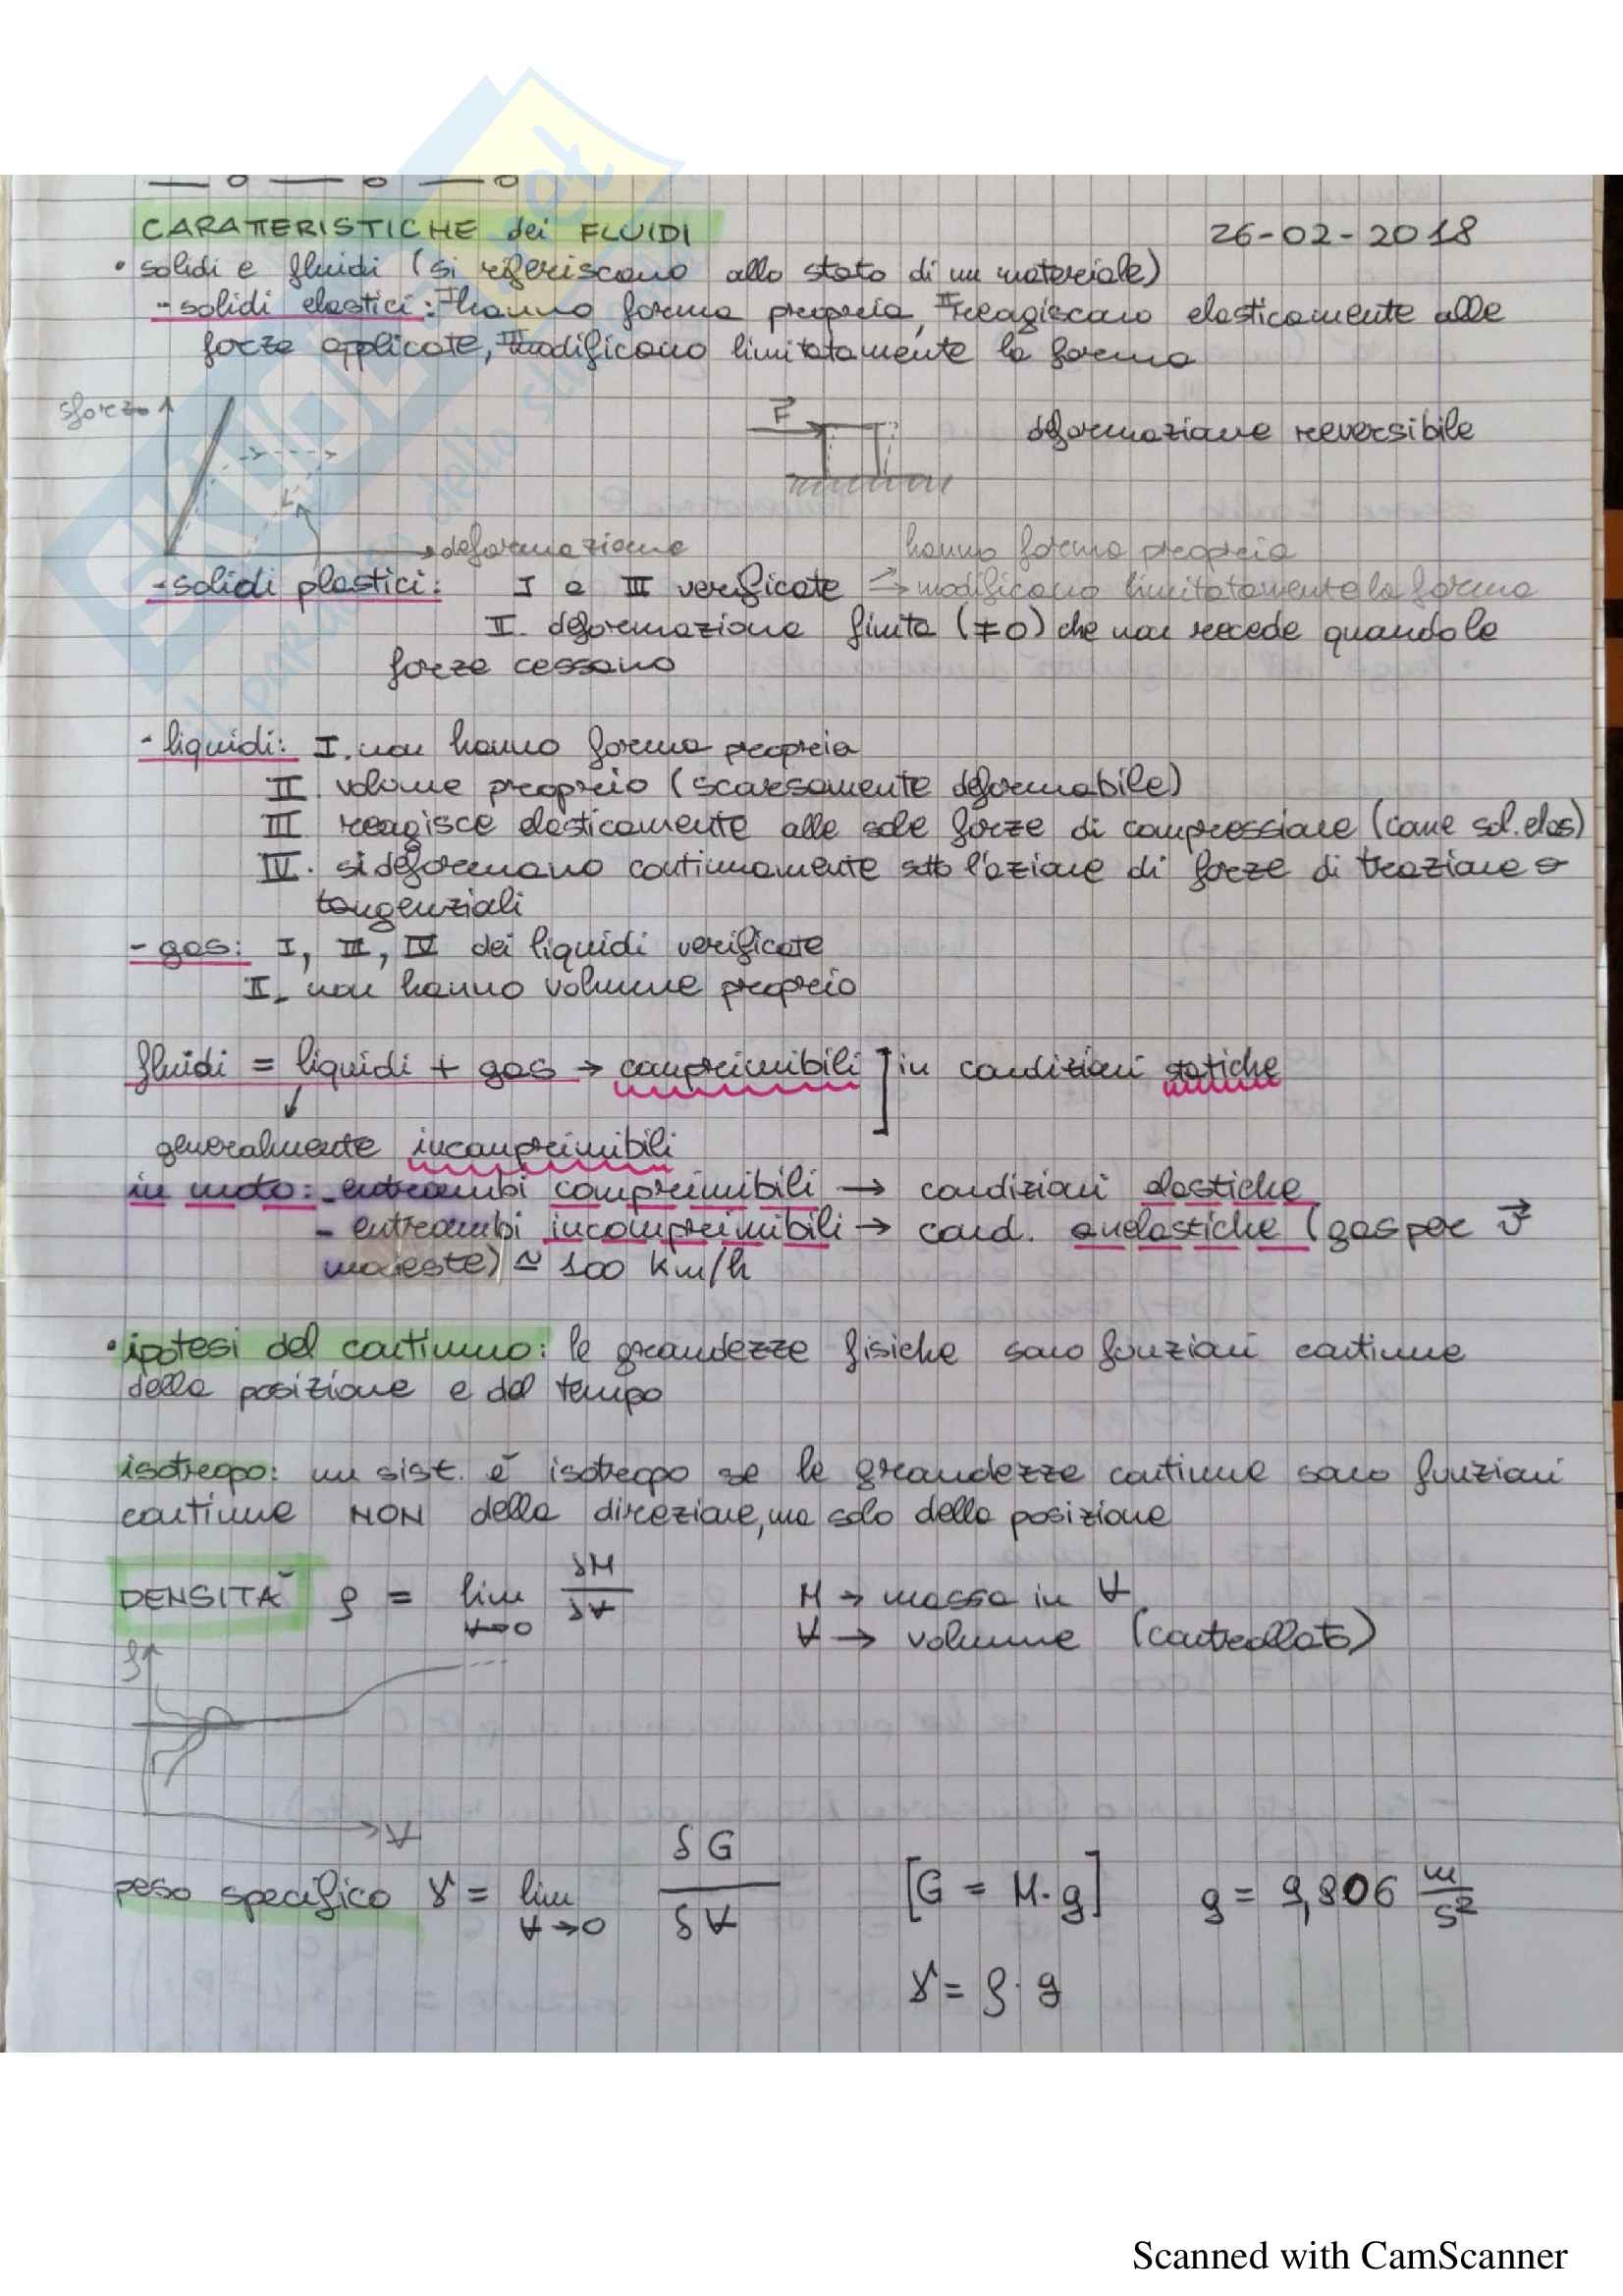 CARATTERISTICHE dei FLUIDI 26-02-2018
• solidi e fluidi (si riferiscono allo stato di un materiale)
- solidi elastici: I hanno forma propria, II reagiscono elasticamente alle
forze applicate, III modificano limitatamente la forma
sforzo F deformazione reversibile
deformazione hanno forma propria
- solidi plastici: I e III verificate → modificano limitatamente la forma
II. deformazione finita (≠0) che non recede quando le
forze cessano
- liquidi: I. non hanno forma propria
II. volume proprio (scarsamente deformabile)
III reagisce elasticamente alle sole forze di compressione (come sol. elas)
IV. si deformano continuamente sotto l'azione di forze di trazione o
tangenziali
- gas: I, III, IV dei liquidi verificate
II. non hanno volume proprio
fluidi = liquidi + gas → comprimibili ] in condizioni statiche
↓
generalmente incomprimibili
in moto: - entrambi comprimibili → condizioni elastiche
- entrambi incomprimibili → cond. anelastiche (gas per v
modeste) ≃ 100 km/h
• ipotesi del continuo: le grandezze fisiche sono funzioni continue
della posizione e del tempo
isotropo: un sist. è isotropo se le grandezze continue sono funzioni
continue NON della direzione, ma solo della posizione
DENSITÀ ρ = lim V→0 δM/δV M → massa in V
V → volume (controllato)
ρ
V
peso specifico γ = lim V→0 δG/δV [G = M·g] g = 9,806 m/s²
γ = ρ·g
Scanned with CamScanner